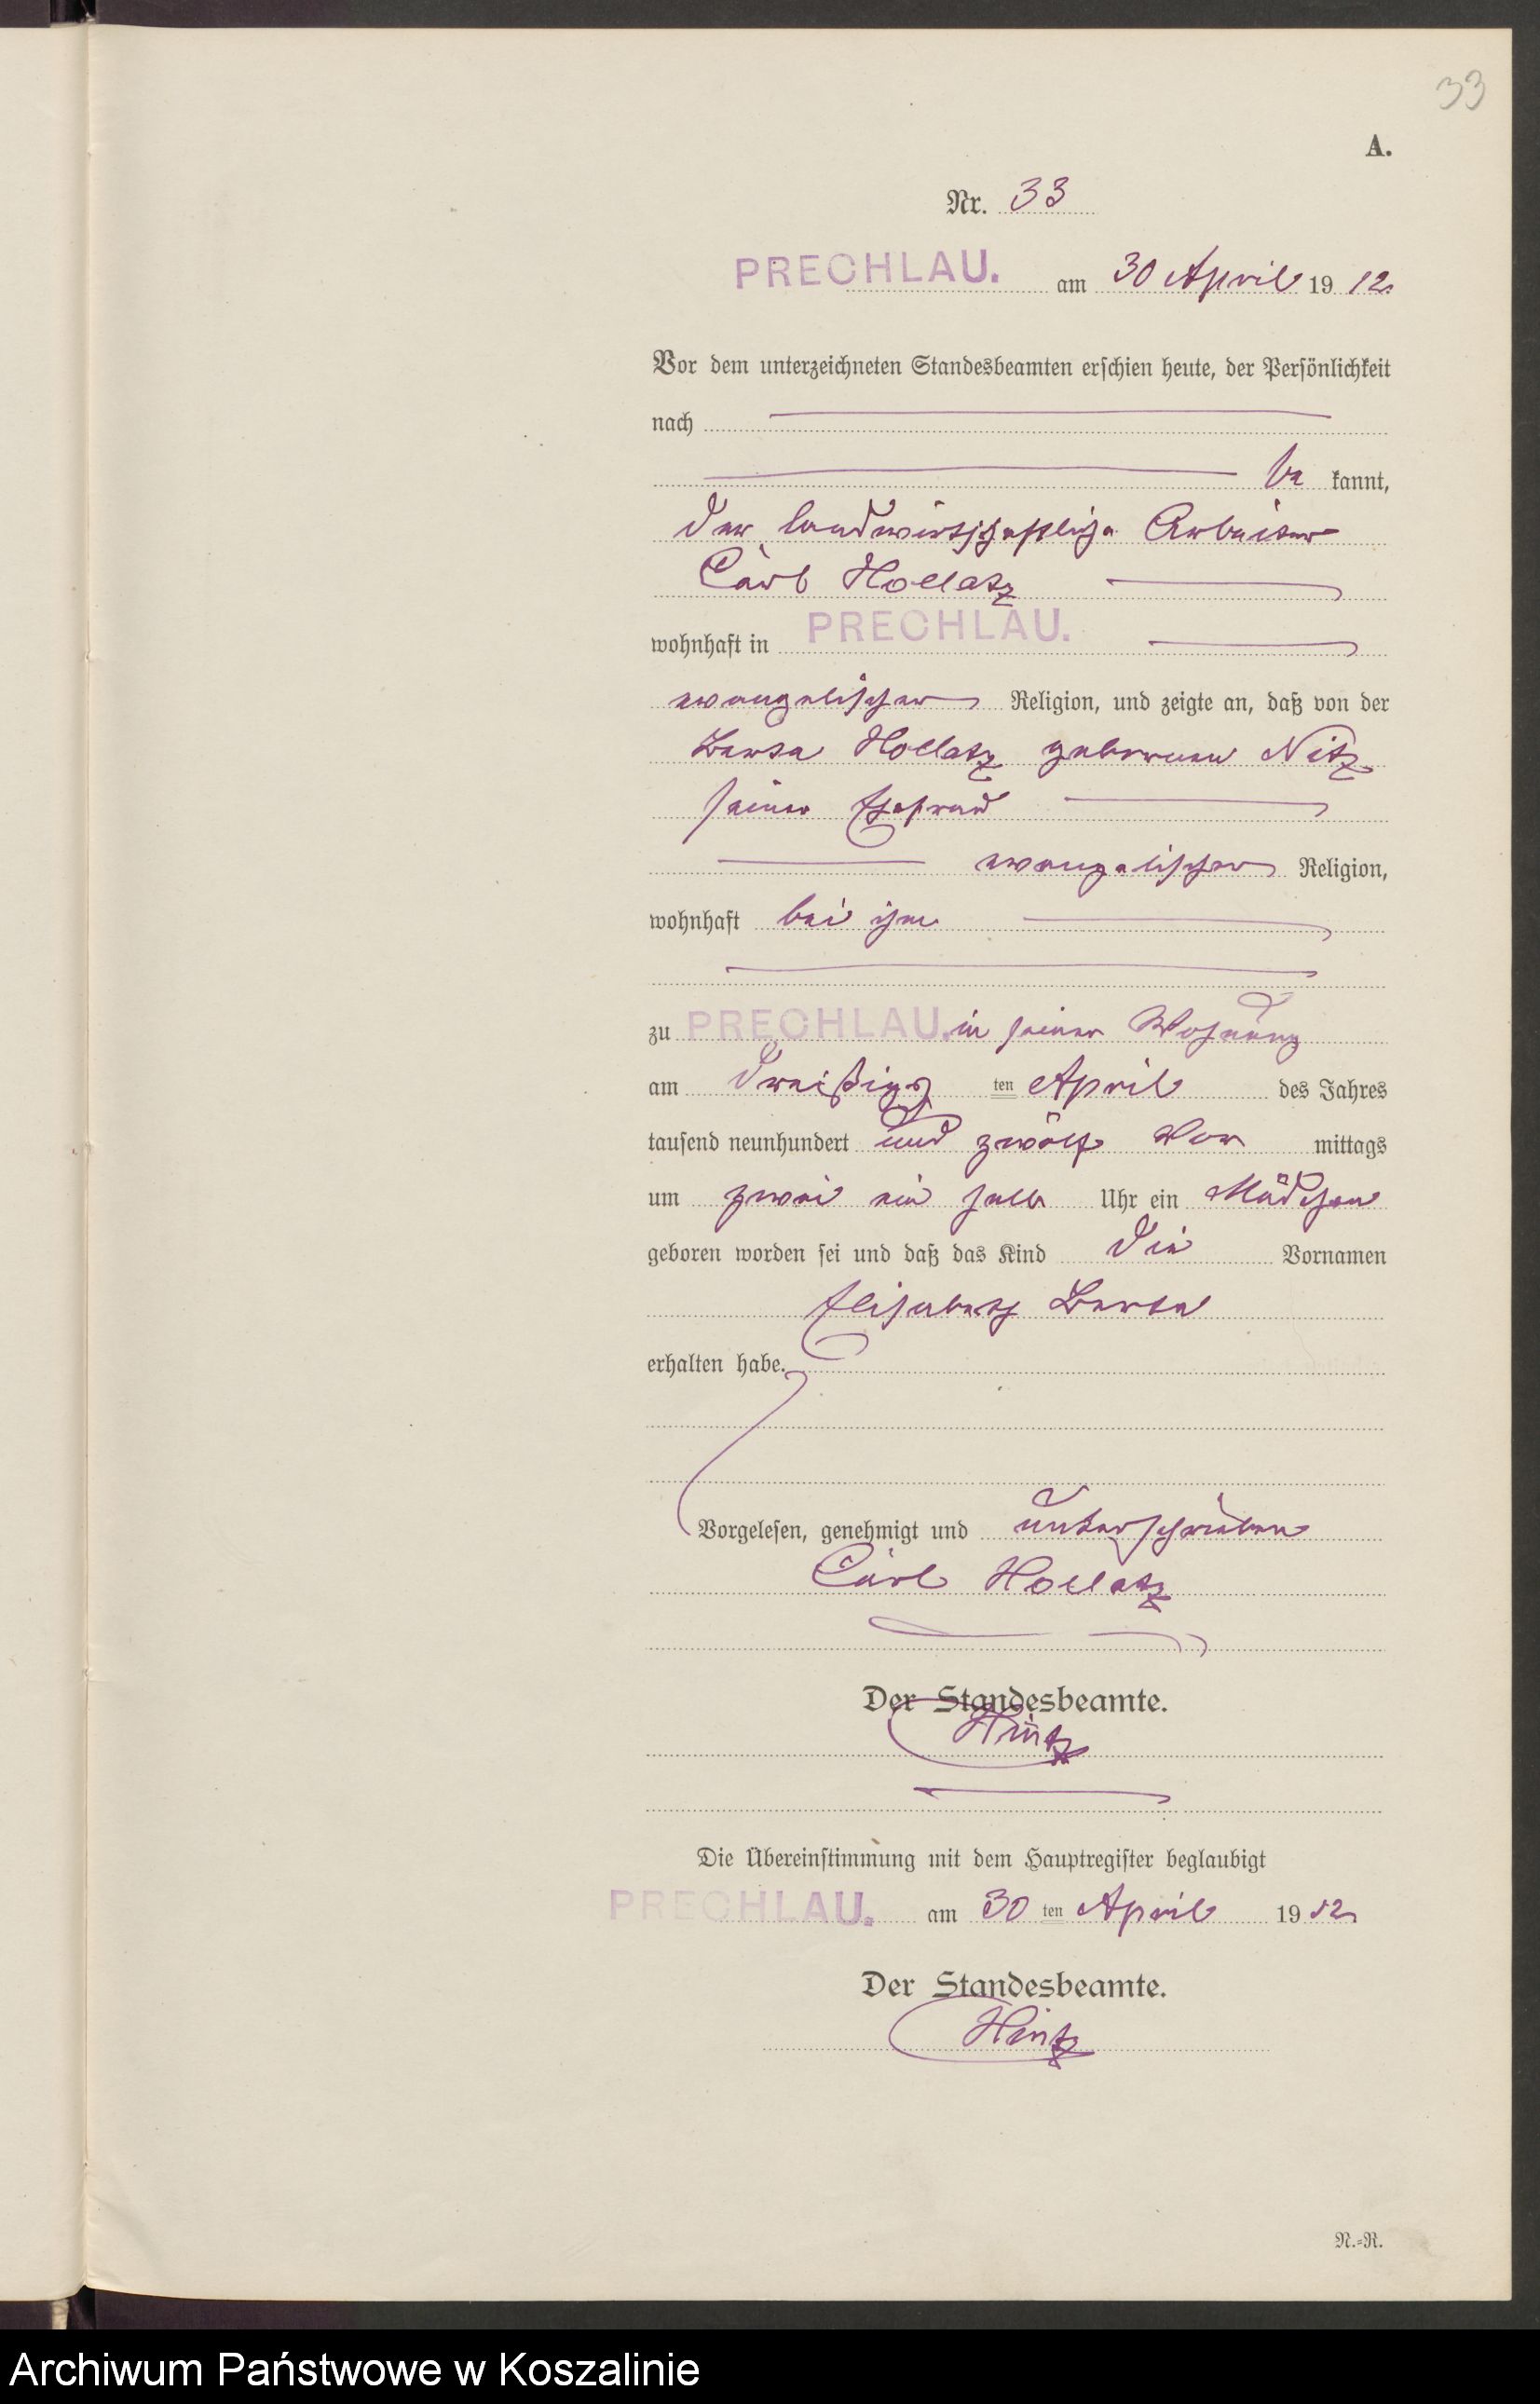 33
A.
Nr. 33
PRECHLAU. am 30 April 1912.
Vor dem unterzeichneten Standesbeamten erschien heute, der Persönlichkeit
nach
be kannt,
der landwirtschaftliche Arbeiter
Carl Hollatz
wohnhaft in PRECHLAU.
evangelischer Religion, und zeigte an, daß von der
Berta Hollatz geborenen Nitz
seiner Ehefrau
evangelischer Religion,
wohnhaft bei ihm
zu PRECHLAU. in seiner Wohnung
am dreißigs ten April des Jahres
tausend neunhundert und zwölf Vor mittags
um zwei ein halb Uhr ein Mädchen
geboren worden sei und daß das Kind die Vornamen
Elisabeth Berta
erhalten habe.
Vorgelesen, genehmigt und unterschrieben
Carl Hollatz
Der Standesbeamte.
Hintz
Die Übereinstimmung mit dem Hauptregister beglaubigt
PRECHLAU. am 30 ten April 1912
Der Standesbeamte.
Hintz
N.=R.
Archiwum Państwowe w Koszalinie